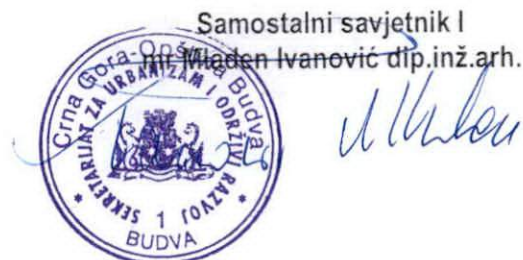 Samostalni savjetnik I
mr Mladen Ivanović dip.inž.arh.
Crna Gora-Opština Budva
SEKRETARIJAT ZA URBANIZAM I ODRŽIVI RAZVOJ
1
BUDVA